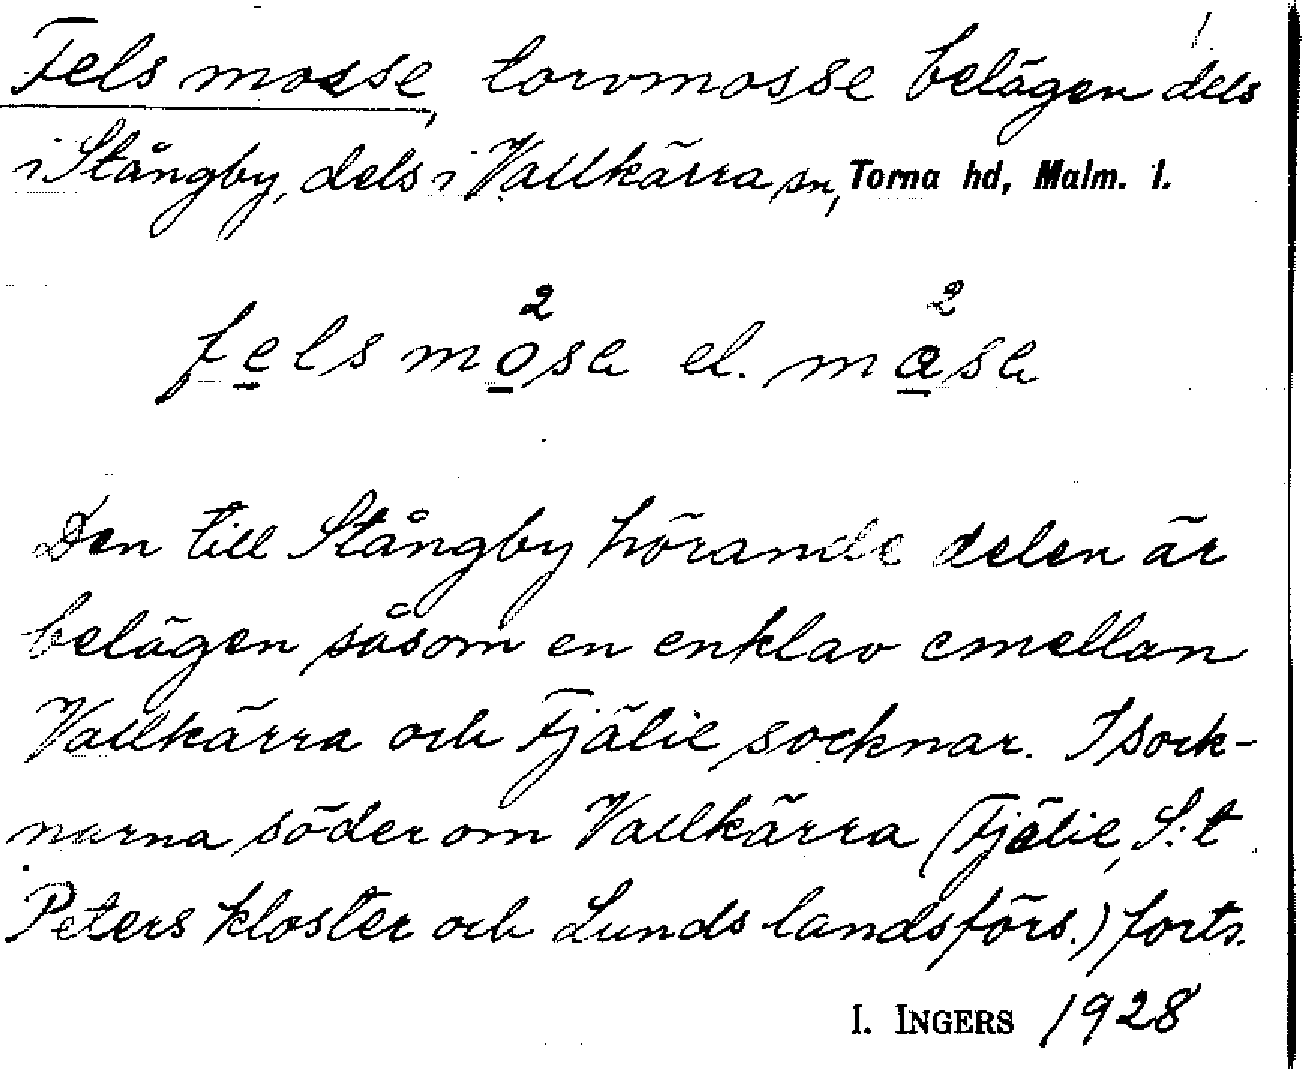 Fels mosse, torvmosse belägen dels
i Stångby, dels i Vallkärra sn, Torna hd, Malm. l.
fels mo²sa el. ma²sa
Den till Stångby hörande delen är
belägen såsom en enklav emellan
Vallkärra och Fjälie socknar. I sock-
narna söder om Vallkärra (Fjälie, S:t
Peters kloster och Lunds landsförs.) forts.
I. INGERS 1928